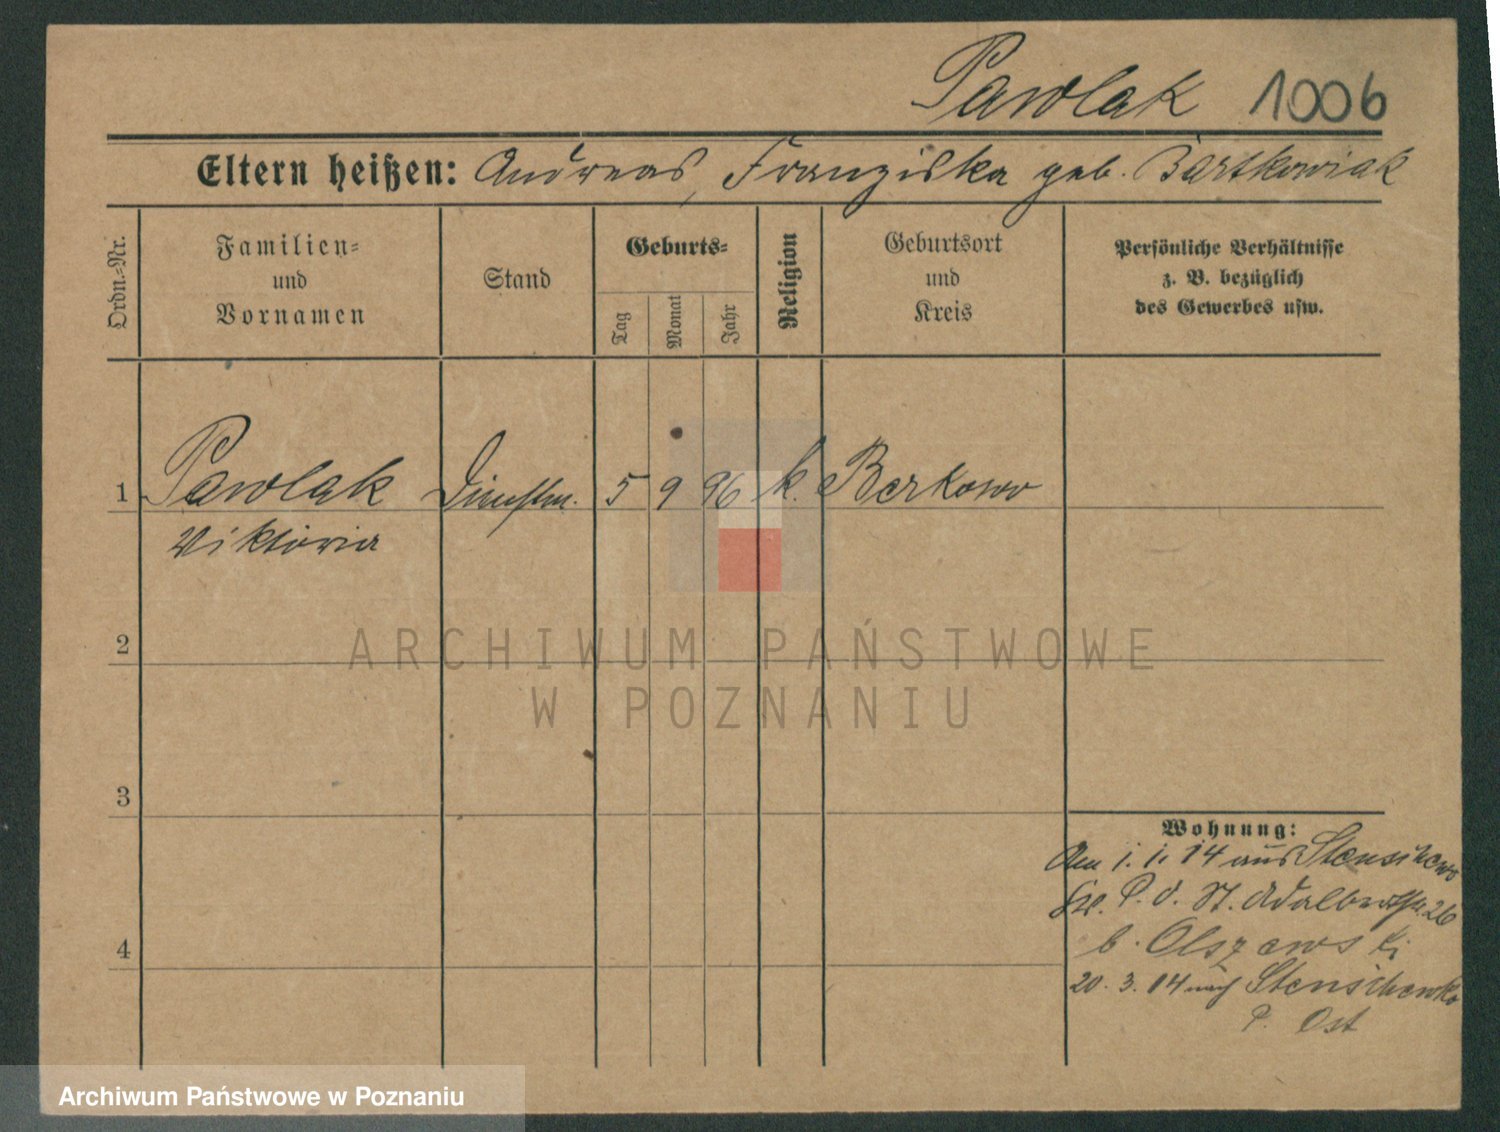 Pawlak 1006
Eltern heißen: Andreas, Franziska geb. Bartkowiak
Ordn.-Nr.
Familien-
und
Vornamen
Stand
Geburts-
Tag
Monat
Jahr
Religion
Geburtsort
und
Kreis
Persönliche Verhältnisse
z. B. bezüglich
des Gewerbes usw.
1 Pawlak Dienstm. 5 9 96 k. Berkowo
Viktoria
2
3
4
Wohnung:
Am 1. 1. 14 aus Stenschewo
P. O. St. Adalbertstr. 26
b. Olszewski
20. 3. 14 nach Stenschewko
P. Ost
ARCHIWUM PAŃSTWOWE
W POZNANIU
Archiwum Państwowe w Poznaniu